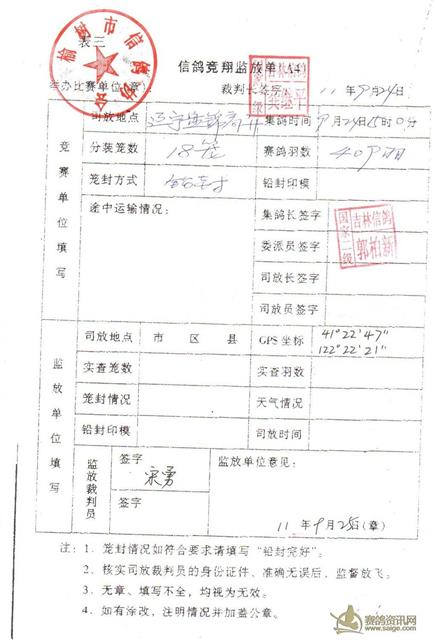 表三
榆树市信鸽协会
信鸽竞翔监放单 (A4)
举办比赛单位(章): 裁判长签字: 11年9月24日
国家一级 吉林信鸽
竞赛单位填写
司放地点 辽宁盘锦高升 集鸽时间 9月24日15时0分
分装笼数 18笼 赛鸽羽数 409羽
笼封方式 铅封 铅封印模
途中运输情况: 集鸽长签字
国家二级 吉林信鸽 郭柏新
委派员签字
司放长签字
司放员签字
监放单位填写
司放地点 市 区 县 GPS坐标 41°22'47"
122°22'21"
实查笼数 实查羽数
笼封情况 天气情况
铅封印模 司放时间
监放裁判员 签字 宋勇 监放单位意见:
签字
11年9月25日(章)
注: 1. 笼封情况如符合要求请填写“铅封完好”。
2. 核实司放裁判员的身份证件、准确无误后,监督放飞。
3. 无章、填写不全,均视为无效。
4. 如有涂改,注明情况并加盖公章。
赛鸽资讯网
www.saige.com